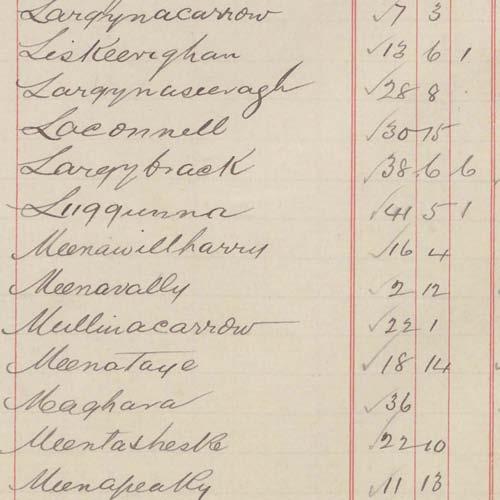 Largynacarrow √7 3
Liskeerighan √13 6 1
Largynaseeragh √28 8
Laconnell √30 15
Largybrack √38 6 6
Luggunna √41 5 1
Meenawillharry √16 4
Meenavally √2 12
Mullinacarrow √22 1
Meenataye √18 14
Maghara √36
Meentasheske √22 10
Meenapeaky √11 13